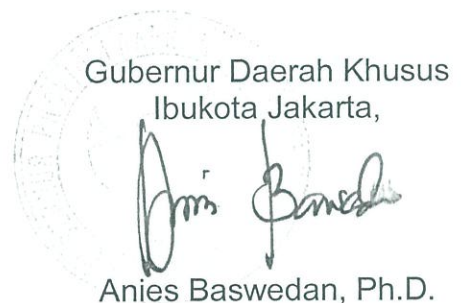 Gubernur Daerah Khusus
Ibukota Jakarta,
Anies Baswedan
Anies Baswedan, Ph.D.